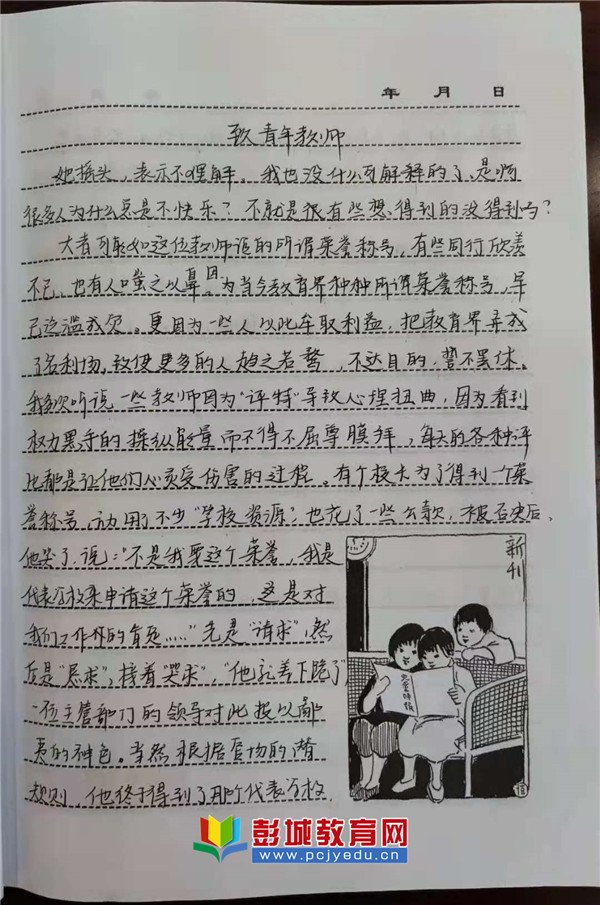 年 月 日
致青年教师
她摇头，表示不理解。我也没什么可解释的了，是啊
很多人为什么总是不快乐？不就是很有些想得到的没得到吗？
大者可能如这位教师说的所谓荣誉称号，有些同行欣羡
不已，也有人嗤之以鼻。因为当今教育界种种所谓荣誉称号，早
已泛滥成灾。更因为一些人以此牟取利益，把教育界弄成
了名利场，致使更多的人趋之若鹜，不达目的，誓不罢休。
我多次听说一些教师因为“评特”导致心理扭曲，因为看到
权力黑手的操纵能量而不得不屈尊膜拜，每天的各种评
比都是让他们心灵受伤害的过程。有个校长为了得到一个荣
誉称号，动用了不少“学校资源”也花了一些公款，被否决后，
他哭了，说：“不是我要这个荣誉，我是
代表学校来申请这个荣誉的，这是对
我们工作的肯定……”先是“请求”，然
后是“恳求”，接着“哭求”，“他就差下跪了”
一位主管部门的领导对此投以鄙
夷的神色。当然根据官场的潜
规则，他终于得到了那个代表学校
新刊
儿童时报
彭城教育网
www.pcjyedu.cn